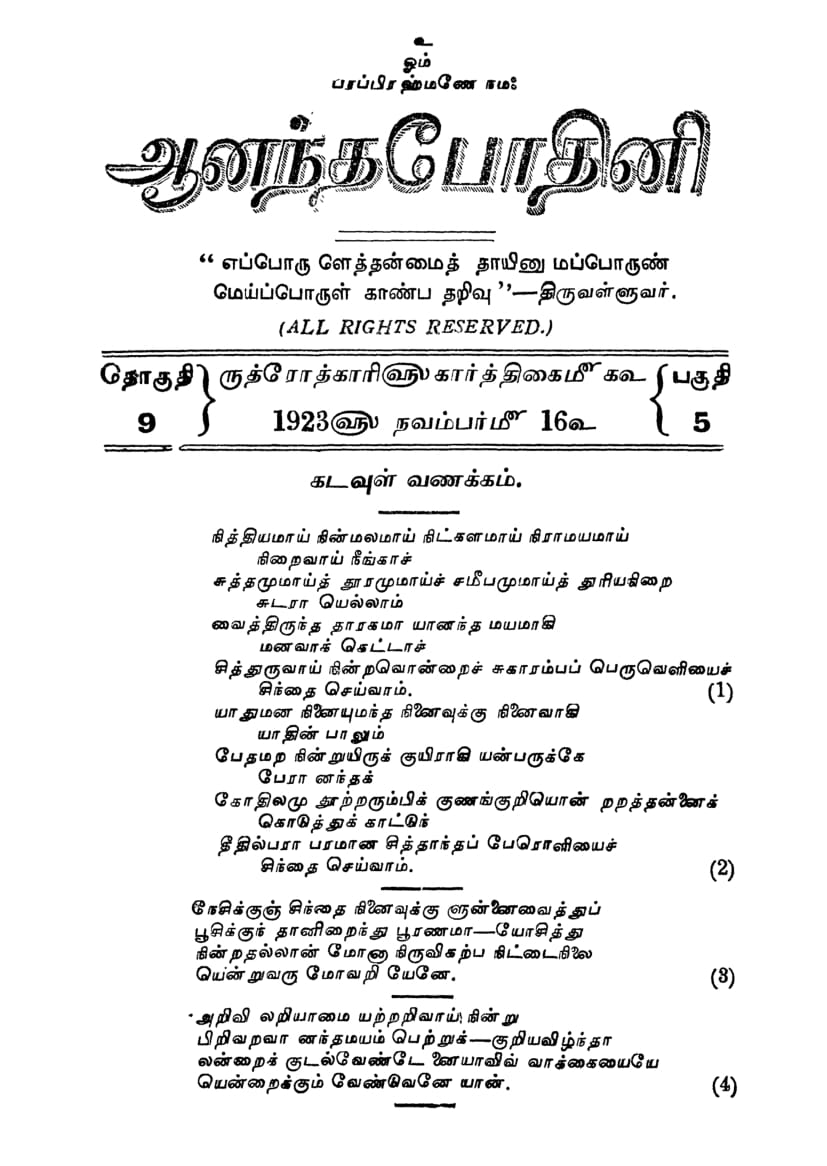 உ
ஓம்
பரப்பிரஹ்மணே நமஃ
ஆனந்தபோதினி
“ எப்பொரு ளெத்தன்மைத் தாயினு மப்பொருண்
மெய்ப்பொருள் காண்ப தறிவு ”—திருவள்ளுவர்.
(ALL RIGHTS RESERVED.)
தொகுதி 9
ருத்ரோத்காரி௵ கார்த்திகைமீ௴ க௳
1923௵ நவம்பர்௴ 16௳
பகுதி 5
கடவுள் வணக்கம்.
நித்தியமாய் நின்மலமாய் நிட்களமாய் நிராமயமாய்
நிறைவாய் நீங்காச்
சுத்தமுமாய்த் தூரமுமாய்ச் சமீபமுமாய்த் துரியநிறை
சுடரா யெல்லாம்
வைத்திருந்த தாரகமா யானந்த மயமாகி
மனவாக் கெட்டாச்
சித்துருவாய் நின்றவொன்றைச் சுகாரம்பப் பெருவெளியைச்
சிந்தை செய்வாம். (1)
யாதுமன நினையுமந்த நினைவுக்கு நினைவாகி
யாதின் பாலும்
பேதமற நின்றுயிருக் குயிராகி யன்பருக்கே
பேரா னந்தக்
கோதிலமு தூற்றரும்பிக் குணங்குறியொன் றறத்தன்னைக்
கொடுத்துக் காட்டுந்
தீதில்பரா பரமான சித்தாந்தப் பேரொளியைச்
சிந்தை செய்வாம். (2)
நேசிக்குஞ் சிந்தை நினைவுக்கு ளுன்னைவைத்துப்
பூசிக்குந் தானிறைந்து பூரணமா—யோசித்து
நின்றதல்லான் மோன நிருவிகற்ப நிட்டைநிலை
யென்றுவரு மோவறி யேனே. (3)
அறிவி லறியாமை யற்றறிவாய் நின்று
பிறிவறவா னந்தமயம் பெற்றுக்—குறியவிழ்ந்தா
லன்றைக் குடல்வேண்டே னையாவிவ் வாக்கையையே
யென்றைக்கும் வேண்டுவனே யான். (4)